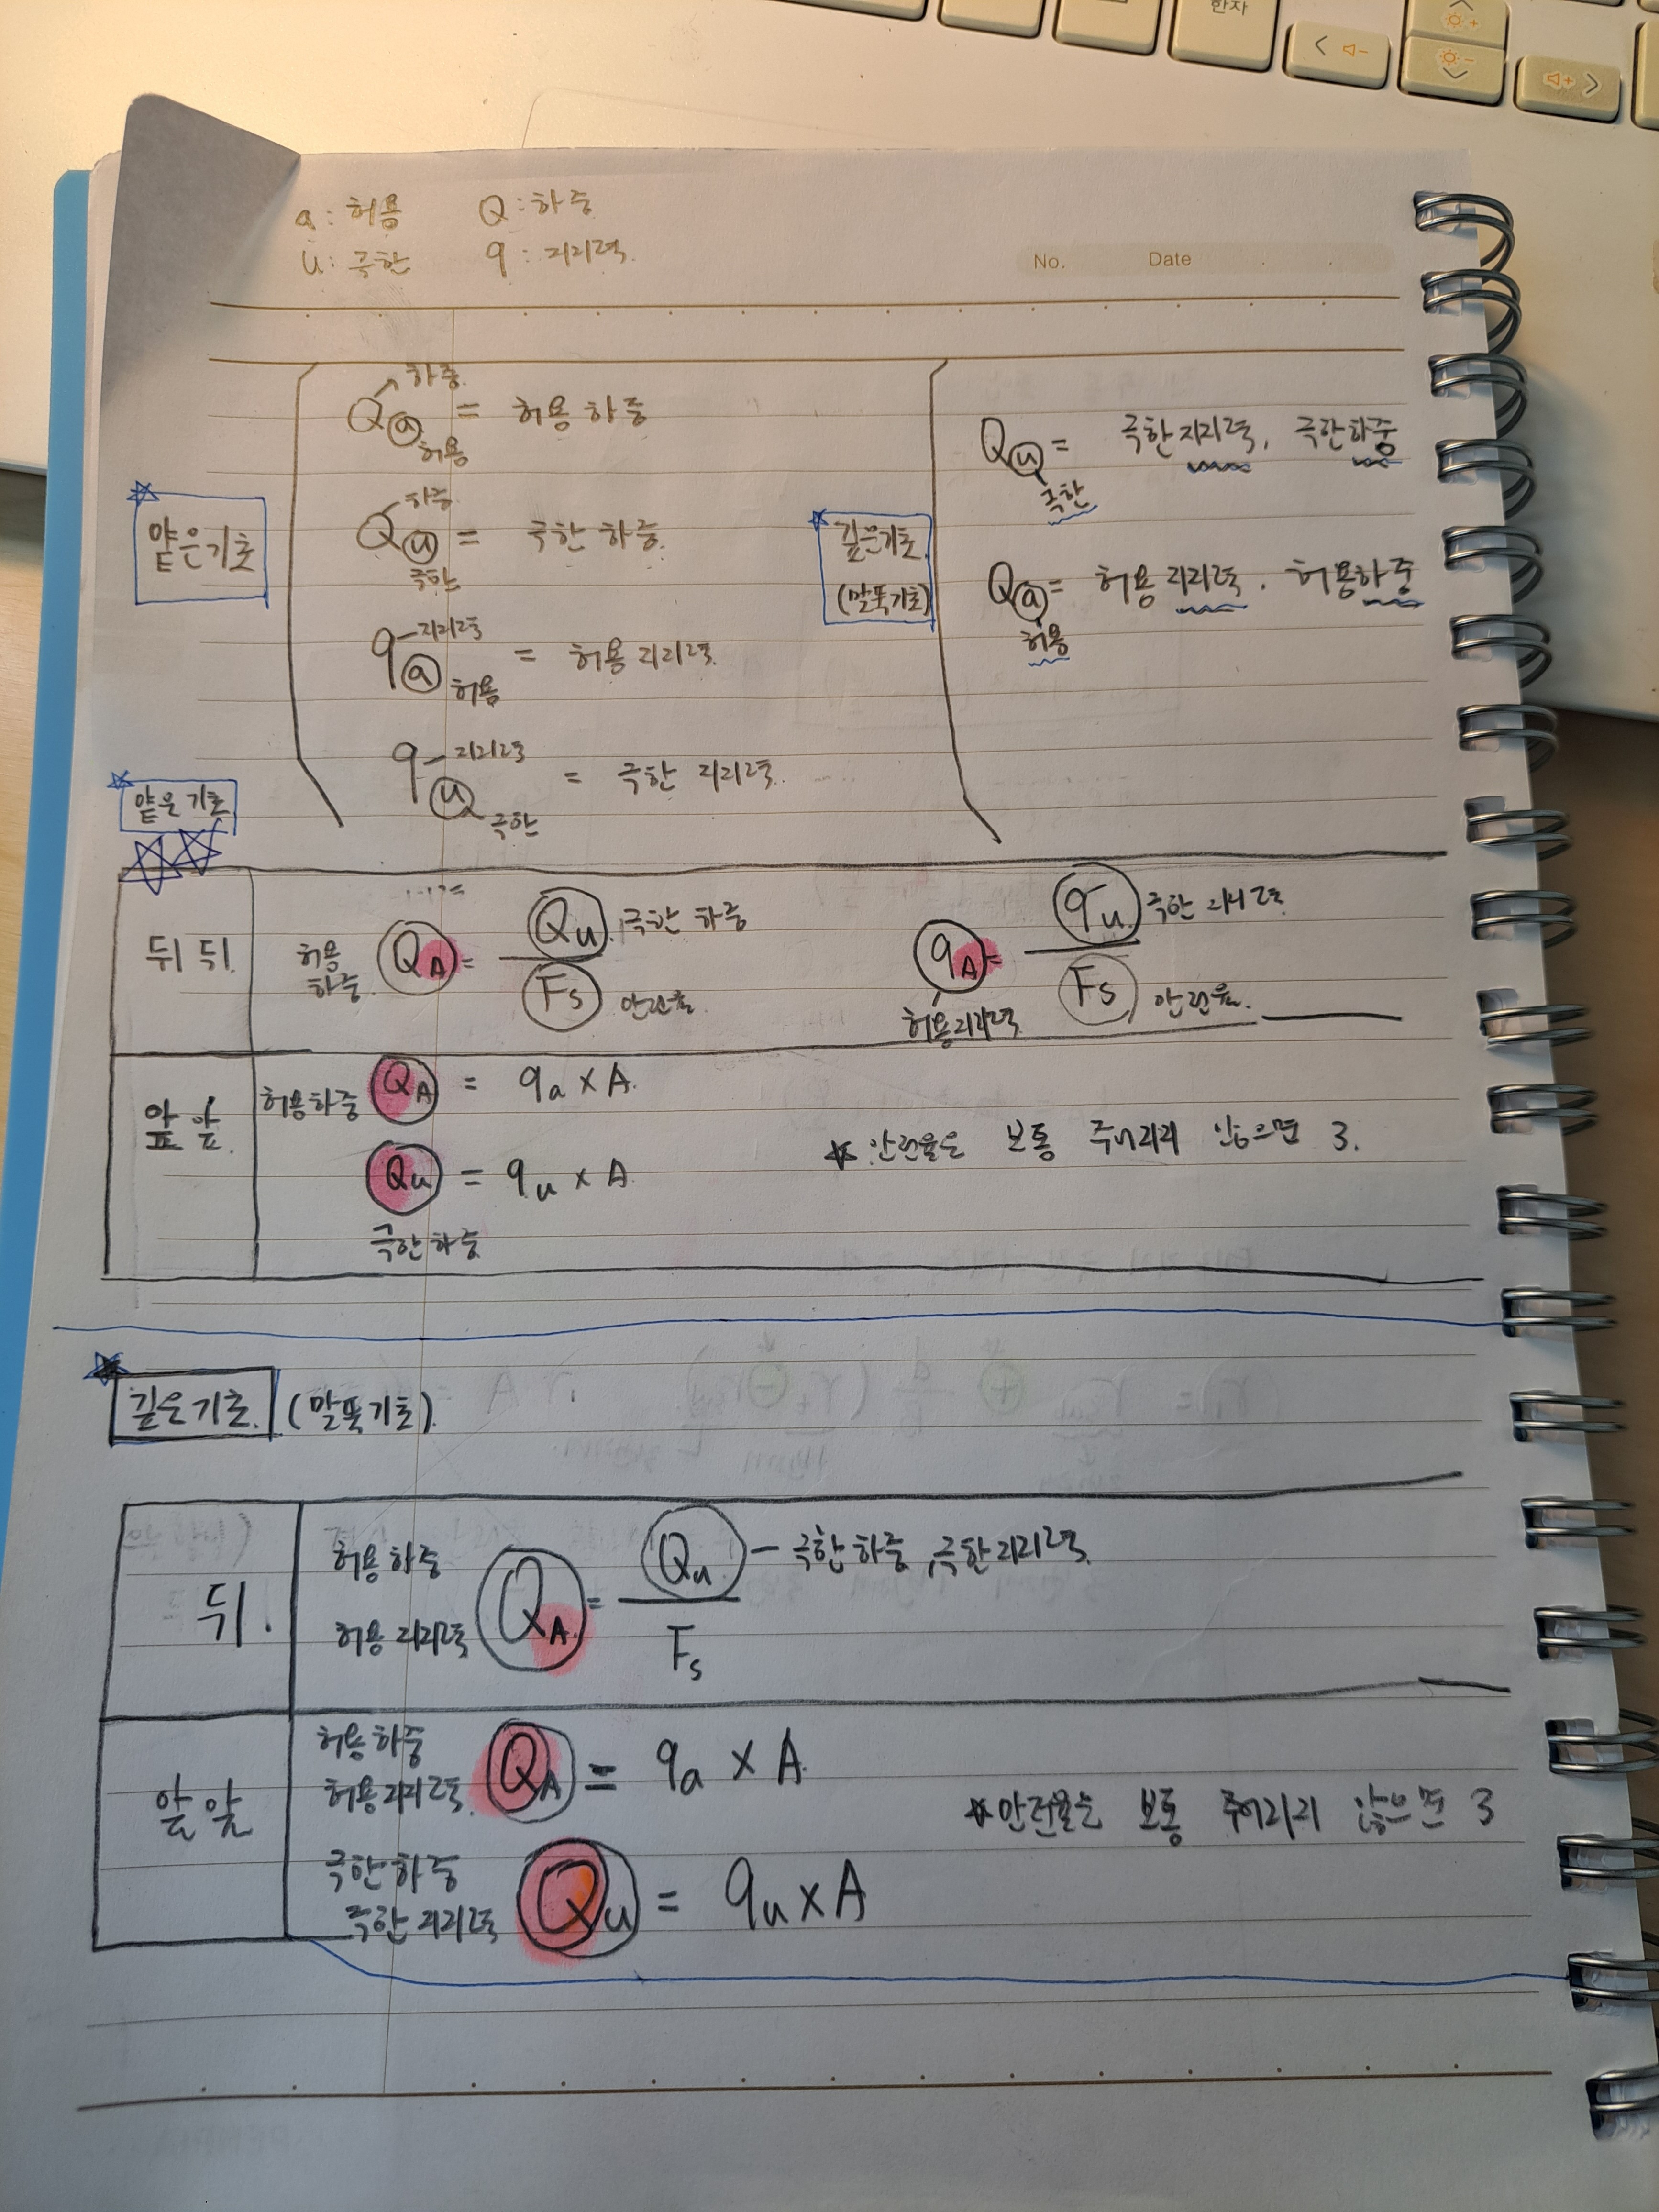 한자
a : 허용 Q : 하중
u : 극한 q : 지지력
No. Date
하중
Qa = 허용 하중
허용
하중
Qu = 극한 하중
극한
지지력
qa = 허용 지지력
허용
지지력
qu = 극한 지지력
극한
얕은기초
깊은기초
(말뚝기초)
Qu = 극한 지지력, 극한하중
극한
Qa = 허용 지지력, 허용하중
허용
얕은 기초
뒤 뒤
허용
하중 QA = Qu 극한 하중
Fs 안전율
qA = qu 극한 지지력
허용지지력 Fs 안전율
앞 앞
허용하중 QA = qa x A
Qu = qu x A
극한 하중
* 안전율은 보통 주어지지 않으면 3.
깊은기초. (말뚝기초).
뒤.
허용 하중
허용 지지력 QA = Qu - 극한 하중, 극한지지력
Fs
앞 앞
허용하중
허용지지력 QA = qa x A
극한하중
극한 지지력 Qu = qu x A
* 안전율은 보통 주어지지 않으면 3